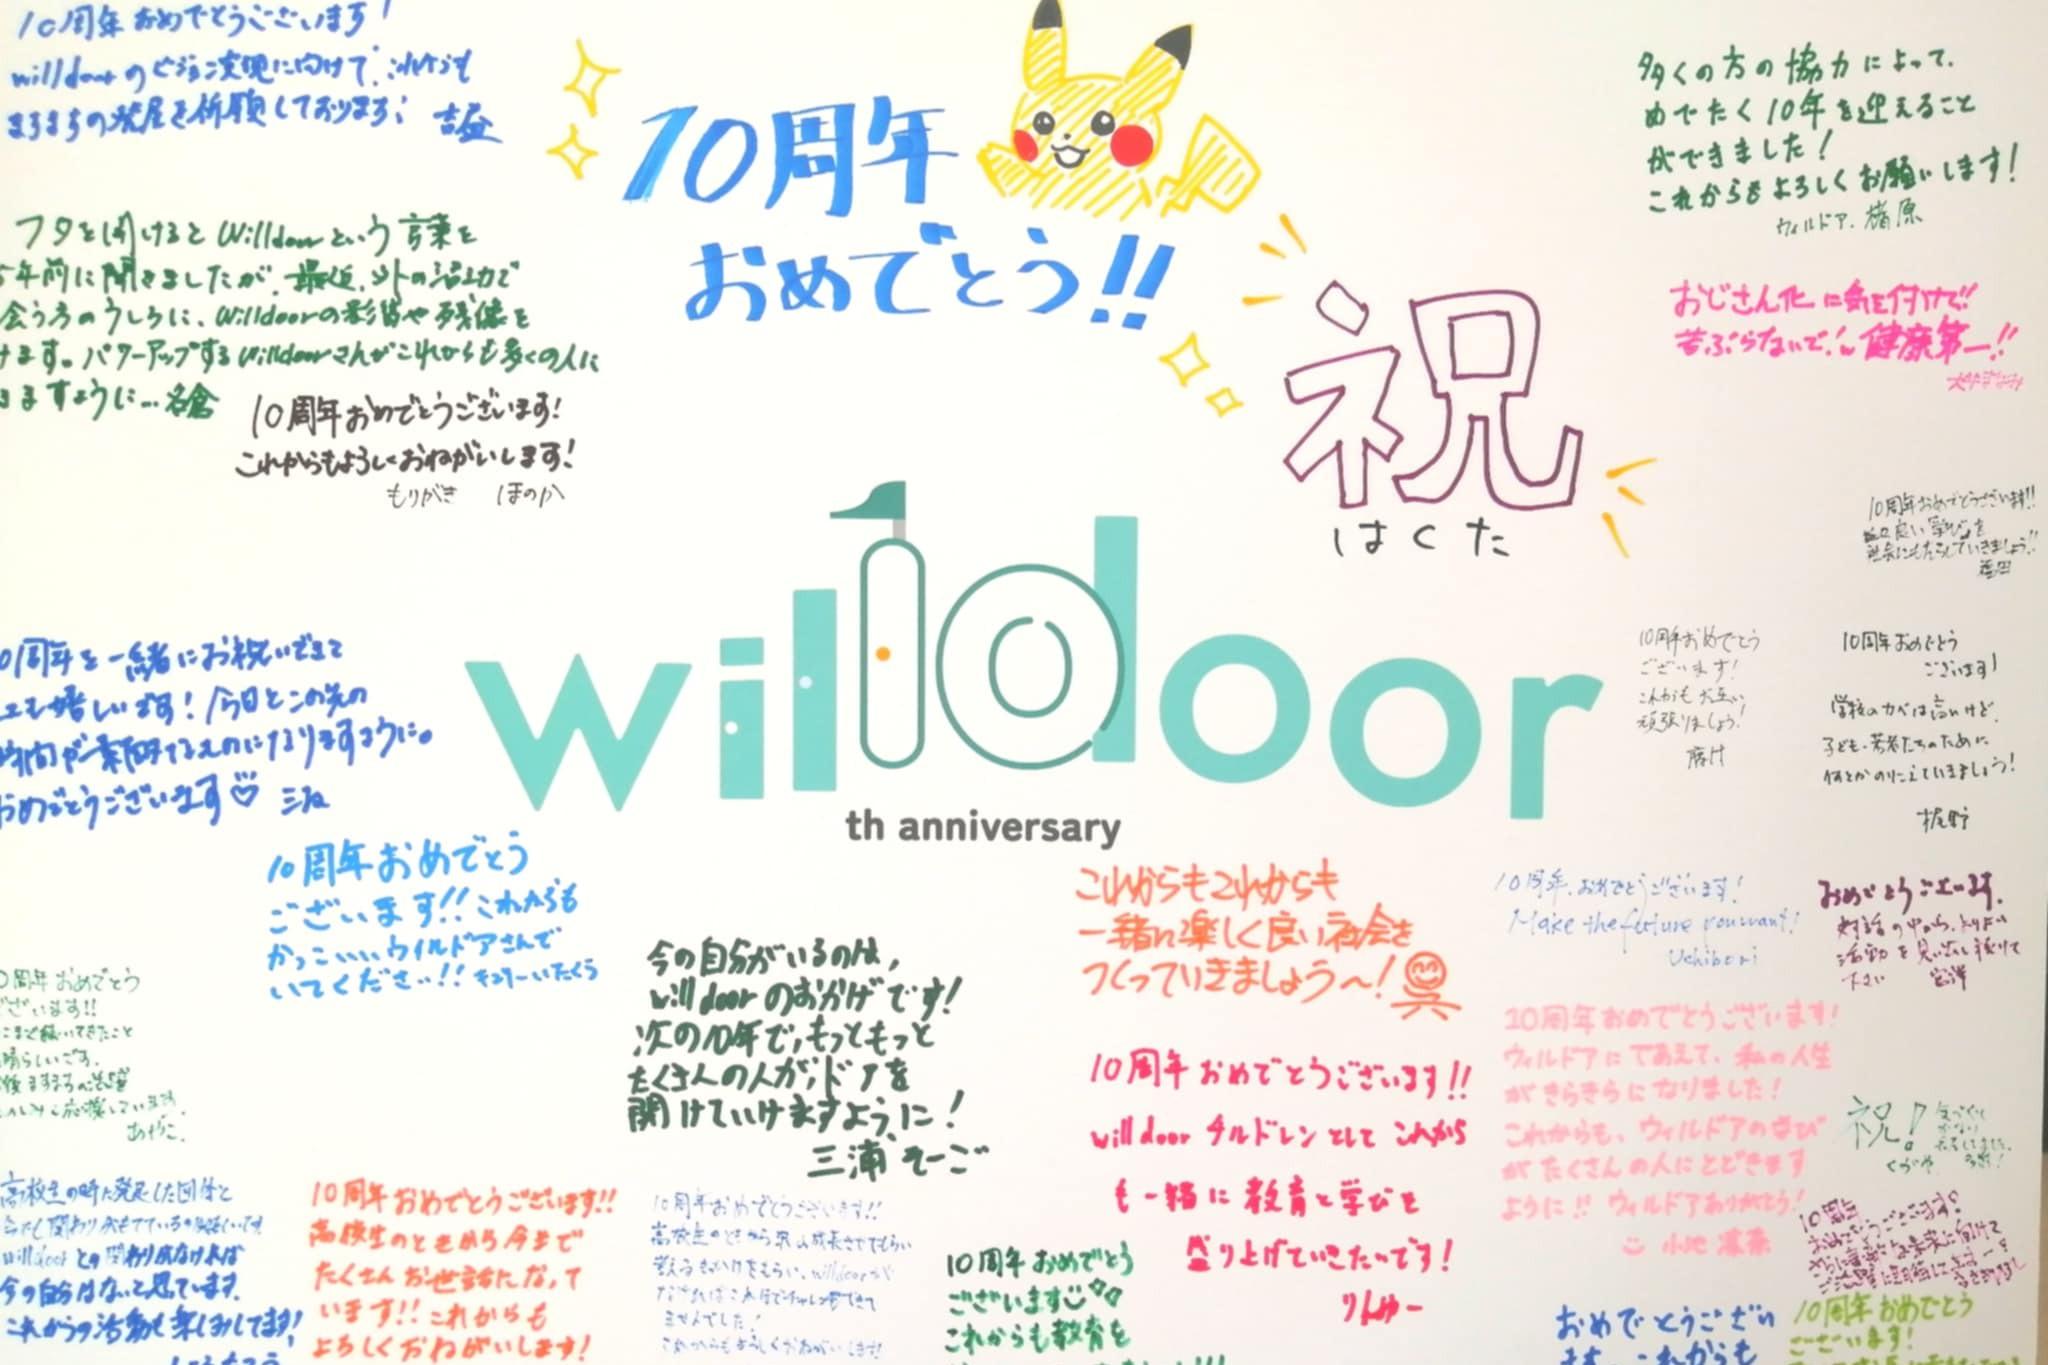 10周年おめでとうございます!
willdoorのビジョン実現に向けて、これからも
ますますの発展を祈願しております!
10周年
おめでとう!!
多くの方の協力によって、
めでたく10年を迎えること
ができました!
これからもよろしくお願いします!
ウィルドア、猪原
フタを開けるとWilldoorという言葉を
5年前に聞きましたが、最近、外の活動で
会う方のうしろに、Willdoorの影響や残像を
けます。パワーアップするWilldoorさんがこれからも多くの人に
きますように…名倉
おじさん化に気を付けて!!
若ぶらないで! 健康第一!!
祝
はくた
10周年おめでとうございます!
これからもよろしくおねがいします!
もりがき ほのか
10周年おめでとうございます!!
良い学びを
社会にもたらしていきましょう!!
willdoor
10
th anniversary
0周年を一緒にお祝いできて
とても嬉しいです!今日とこの先の
時間が素敵なものになりますように。
おめでとうございます♡
10周年おめでとう
ございます!
これからもお互い
頑張りましょう!
10周年おめでとう
ございます!
学校のカベは高いけど、
子ども・若者たちのために
何とかのりこえていきましょう!
梶野
10周年おめでとう
ございます!! これからも
かっこいいウィルドアさんで
いてください!! キュリーいたくら
これからもこれからも
一緒に楽しく良い社会を
つくっていきましょう〜!
10周年、おめでとうございます!
Make the future you want!
Uchibori
おめでとうございます。
対話の中から、よりよい
活動を見い出し続けて
下さい 宮澤
今の自分がいるのは、
willdoorのおかげです!
次の10年で、もっともっと
たくさんの人がドアを
開けていけますように!
三浦そーご
0周年おめでとう
ございます!!
ここまで続いてきたこと
素晴らしいです。
今後ますますの活躍
たのしみに応援しています。
あやこ
10周年おめでとうございます!!
willdoorチルドレンとして これから
も一緒に教育と学びを
盛り上げていきたいです!
りんゆー
10周年おめでとうございます!
ウィルドアにであえて、私の人生
がきらきらになりました!
これからも、ウィルドアの学び
がたくさんの人にとどきます
ように!! ウィルドアありがとう!
小地 凛奈
祝!
高校生の時に発足した団体と
willdoorとの関わりがなければ
今の自分はないと思っています。
これからの活動も楽しみにしてます!
10周年おめでとうございます!!
高校生のときから今まで
たくさんお世話になって
います!! これからも
よろしくおねがいします!
10周年おめでとうございます!!
高校生のときから沢山成長させてもらい
考えるきっかけをもらい、willdoorが
なければこれほどチャレンジできて
ませんでした!
これからもよろしくおねがいします!
10周年おめでとう
ございます
これからも教育を
10周年
おめでとうございます!
おめでとうござい
ます。これからも
10周年おめでとう
ございます!